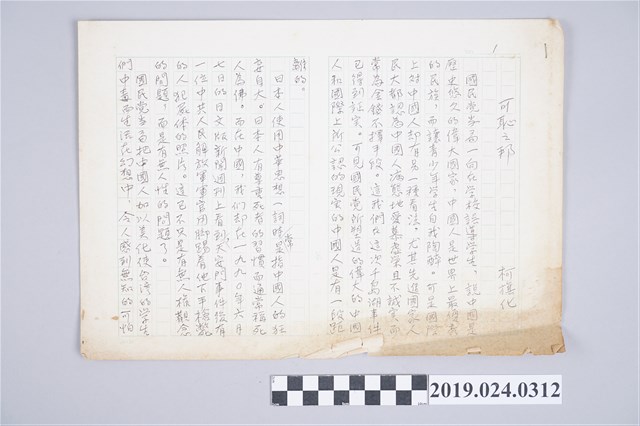 1
可恥之邦
柯旗化
國民黨當局一向在學校誤導學生，說中國是
歷史悠久的偉大國家，中國人是世界上最優秀
的民族，而讓青少年學生自我陶醉。可是國際
上對中國人却有另一種看法。尤其先進國家人
民大都認為中國人病態地愛慕虛榮且不誠實而
常為金錢不擇手段。這我們在這次千島湖事件
已得到証實。可見國民黨所塑造的偉大的中國
人和國際上所公認的現實的中國人是有一段距
離的。
日本人使用中華思想一詞時常是指中國人的狂
妄自大。日本人有尊重死者的習慣而通常稱死
人為佛。而在中國，我們却在一九九〇年六月
七日的日文版新聞週刊上看到天安門事件後有
一位中共人民解放軍軍官用脚踢着他下手槍斃
的人犯屍体的照片。這已不只是有無人權觀念
的問題，而是有無人性的問題了。
國民黨當局把中國人加以美化使台湾的學生
們中毒而生活在幻想中，令人感到無知的可怕
2019.024.0312